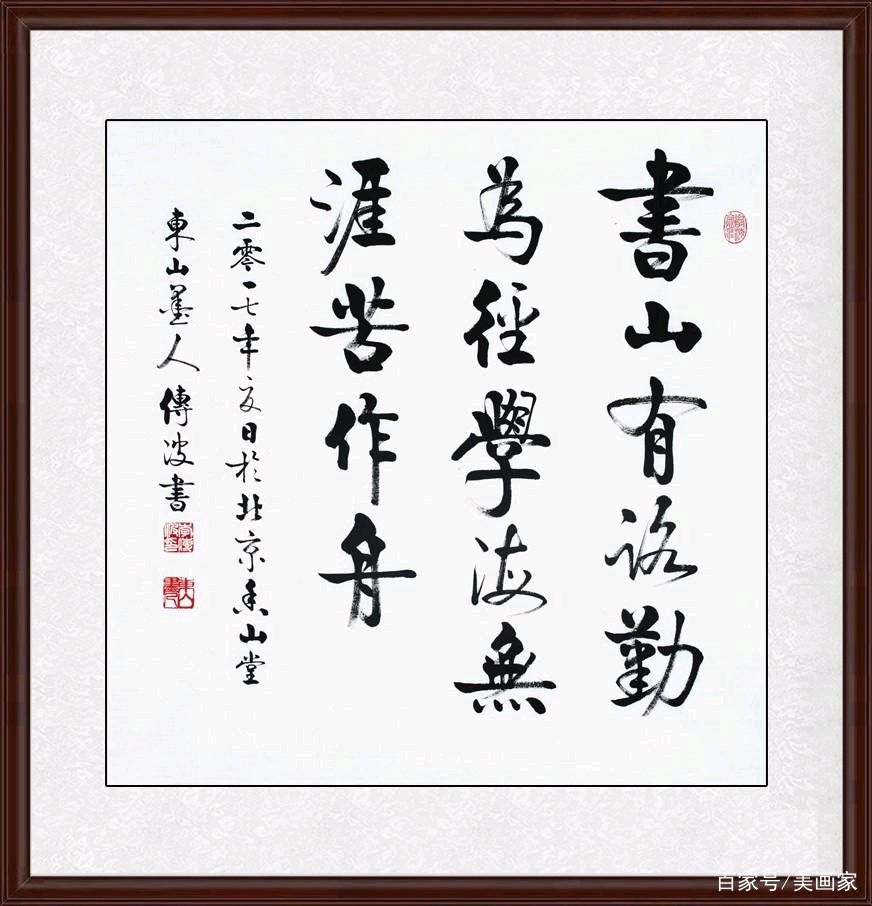 書山有路勤
為徑學海無
涯苦作舟
二零一七年夏日於北京香山堂
東山墨人傳波書
百家号/美画家